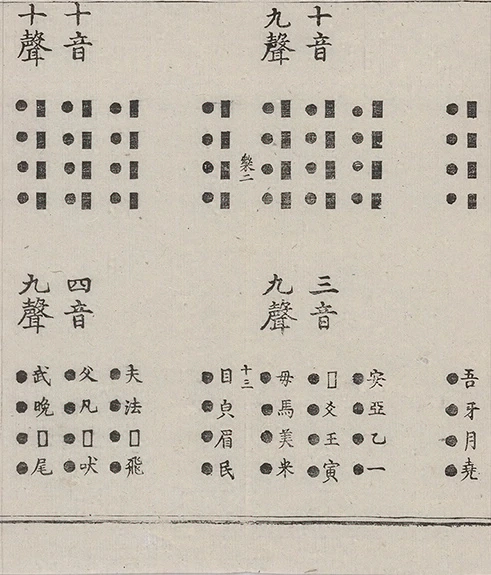 ●■●■●■●■
十音
九聲
●■●■●■●■
●■●■●■●■
●■●■●■●■
二
●■●■●■●■
十音
十聲
●■●■●■●■
●■●■●■●■
●■●■●■●■
●吾●牙●月●堯
三音
九聲
●安●亞●乙●一
●□●爻●王●寅
●母●馬●美●米
十三
●目●皃●眉●民
四音
九聲
●夫●法●□●飛
●父●凡●□●吠
●武●晚●□●尾